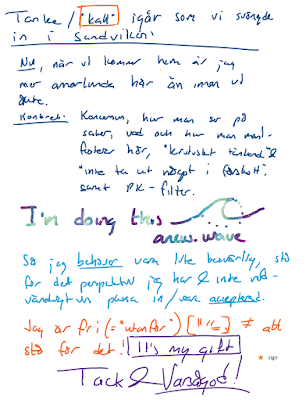 Tanke / "kall" igår som vi svängde
in i Sandviken:
Nu, när vi kommer hem är jag
mer annorlunda här än innan vi
åkte.
Konkret: Koncensus, hur man ser på
saker, vad och hur man mani-
festerar här, "kritiskt tänkande" &
"inte ta ut något i förskott",
samt PK-filter.
I'm doing this
anew.wave
Så jag behöver vara lite besvärlig, stå
för det perspektiv jag har & inte nöd-
vändigtvis passa in / vara accepterad.
Jag är fri (= "utanför") ≠ att
stå för det! It's my gift
Tack & Varsågod!
sign